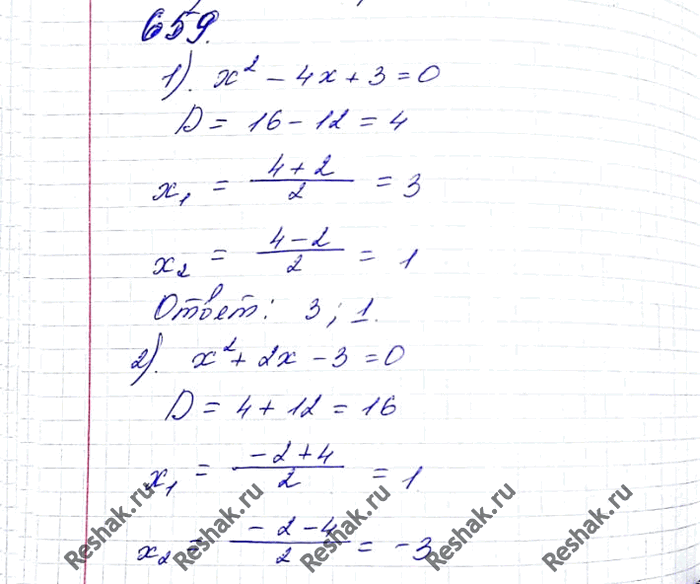 659.
1). x² - 4x + 3 = 0
D = 16 - 12 = 4
x₁ = (4 + 2)/2 = 3
x₂ = (4 - 2)/2 = 1
Ответ: 3; 1.
2). x² + 2x - 3 = 0
D = 4 + 12 = 16
x₁ = (-2 + 4)/2 = 1
x₂ = (-2 - 4)/2 = -3
Reshak.ru Reshak.ru Reshak.ru Reshak.ru Reshak.ru